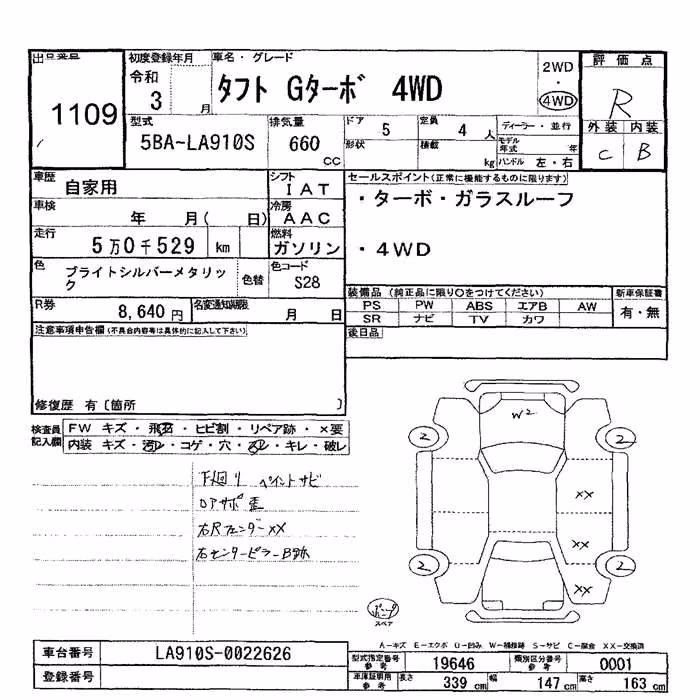 出品番号
1109
初度登録年月
令和
3 月
車名・グレード
タフト Gターボ 4WD
2WD
・
4WD
評価点
R
外装 内装
C B
型式
5BA-LA910S
排気量
660
CC
ドア 5
定員 4 人
ディーラー・並行
形状
積載 kg
モデル年式 年
ハンドル 左・右
車歴 自家用
シフト IAT
車検 年 月( 日)
冷房 AAC
走行 5万0千529 km
燃料 ガソリン
色 ブライトシルバーメタリック
色替
色コード S28
R券 8,640円
名変通知期限 月 日
セールスポイント(正常に機能するものに限ります)
・ターボ・ガラスルーフ
・4WD
装備品(純正品に限り〇をつけてください)
PS PW ABS エアB AW
SR ナビ TV カワ
新車保証書
有・無
後日品
注意事項申告欄(不具合内容等は具体的に記入して下さい)
修復歴 有〔箇所 〕
検査員記入欄
FW キズ・飛石・ヒビ割・リペア跡・×要
内装 キズ・汚レ・コゲ・穴・スレ・キレ・破レ
下廻り ペイントサビ
右センターピラーB跡
W2
2
2
XX
XX
2
2
XX
スペア
A-キズ E-エクボ U-凹み W-補修跡 S-サビ C-腐食 XX-交換済
車台番号 LA910S-0022626
登録番号
型式指定番号 参考 19646
類別区分番号 参考 0001
車庫証明用 参考 長さ 339 cm 幅 147 cm 高さ 163 cm